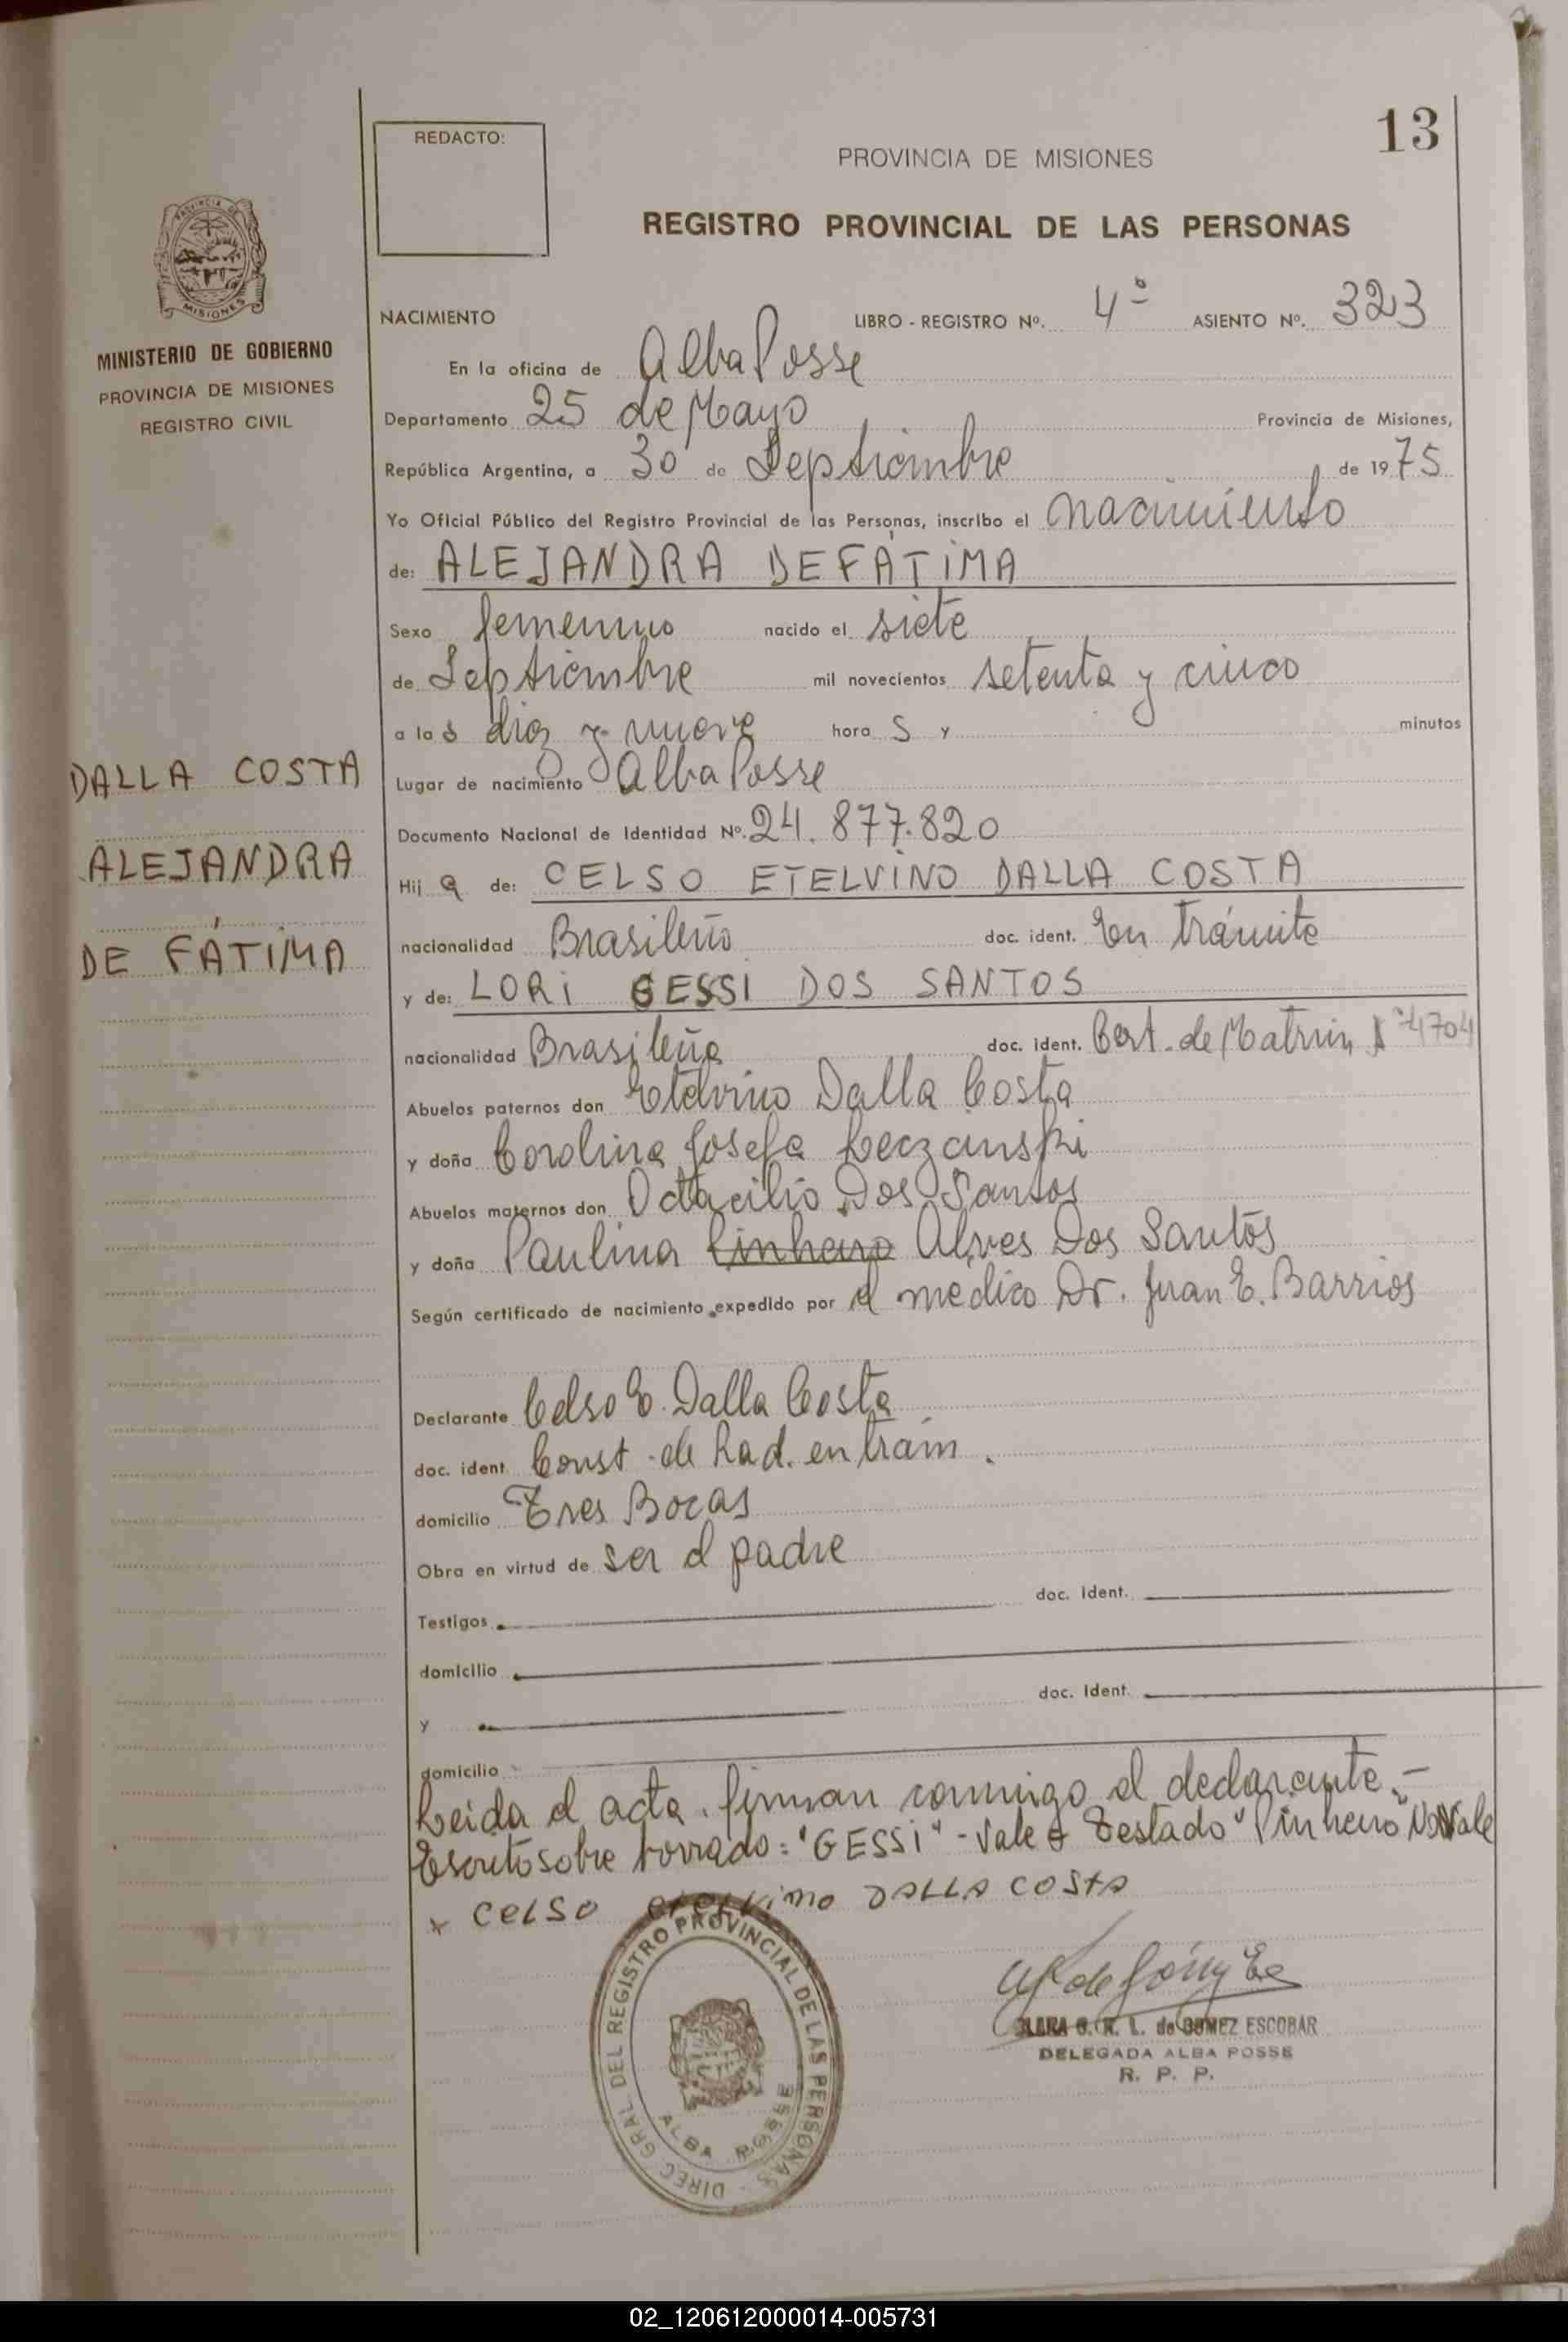 13
REDACTO:
PROVINCIA DE MISIONES
REGISTRO PROVINCIAL DE LAS PERSONAS
PROVINCIA DE
MISIONES
MINISTERIO DE GOBIERNO
PROVINCIA DE MISIONES
REGISTRO CIVIL
NACIMIENTO LIBRO - REGISTRO Nº. 4º ASIENTO Nº. 323
En la oficina de Alba Posse
Departamento 25 de Mayo Provincia de Misiones,
República Argentina, a 30 de Septiembre de 1975
Yo Oficial Público del Registro Provincial de las Personas, inscribo el nacimiento
de: ALEJANDRA DE FÁTIMA
Sexo femenino nacido el siete
de Septiembre mil novecientos setenta y cinco
a las diez y nueve horas y minutos
Lugar de nacimiento Alba Posse
Documento Nacional de Identidad Nº. 24.877.820
DALLA COSTA
ALEJANDRA
DE FÁTIMA
Hija de: CELSO ETELVINO DALLA COSTA
nacionalidad Brasileño doc. ident. En trámite
y de: LORI GESSI DOS SANTOS
nacionalidad Brasileña doc. ident. Cert. de Matrim 4704
Abuelos paternos don Etelvino Dalla Costa
y doña Carolina Josefa
Abuelos maternos don Octacilio Dos Santos
y doña Paulina Pinheiro Alves Dos Santos
Según certificado de nacimiento expedido por el médico Dr. Juan E. Barrios
Declarante Celso E. Dalla Costa
doc. ident. Const. de Rad. en trám.
domicilio Tres Bocas
Obra en virtud de ser el padre
Testigos doc. ident.
domicilio
y doc. ident.
domicilio
Leida el acta, firman conmigo el declarante.-
Escrito sobre borrado: "GESSI" - Vale Testado "Pinheiro" No Vale
x CELSO ETELVINO DALLA COSTA
DIREC GRAL DEL REGISTRO PROVINCIAL DE LAS PERSONAS
ALBA POSSE
de GOMEZ ESCOBAR
DELEGADA ALBA POSSE
R. P. P.
02_120612000014-005731